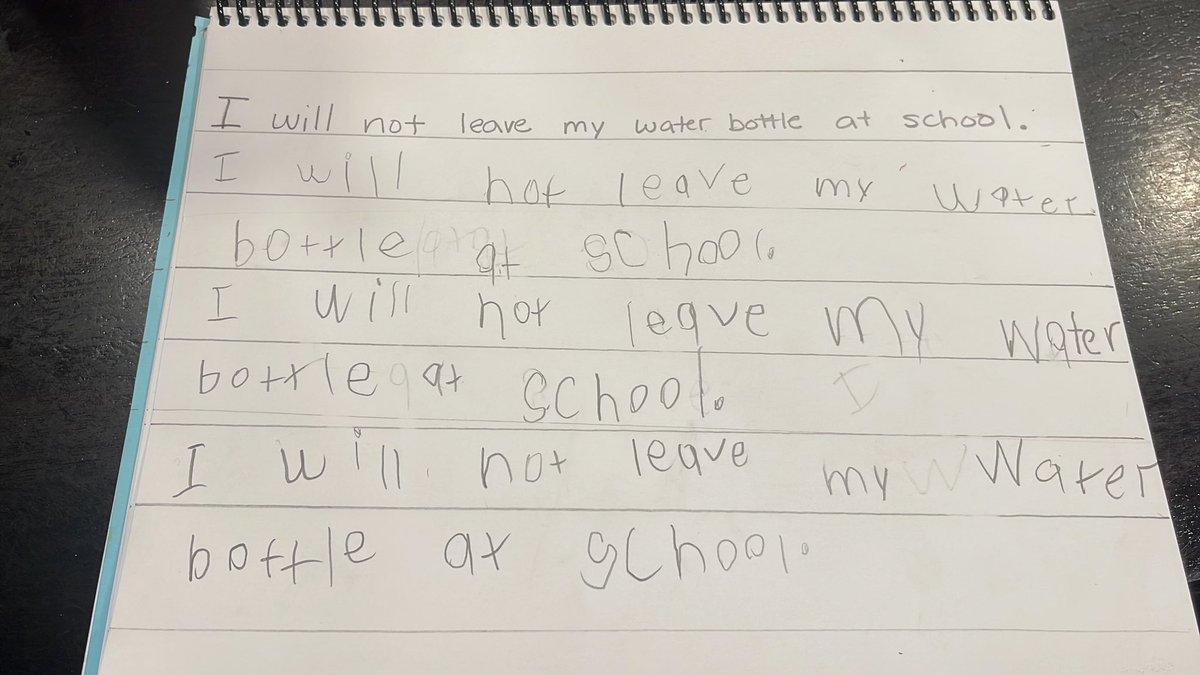 I will not leave my water bottle at school.
I will not leave my water
bottle at school.
I will not leave my water
bottle at school.
I will not leave my Water
bottle at school.